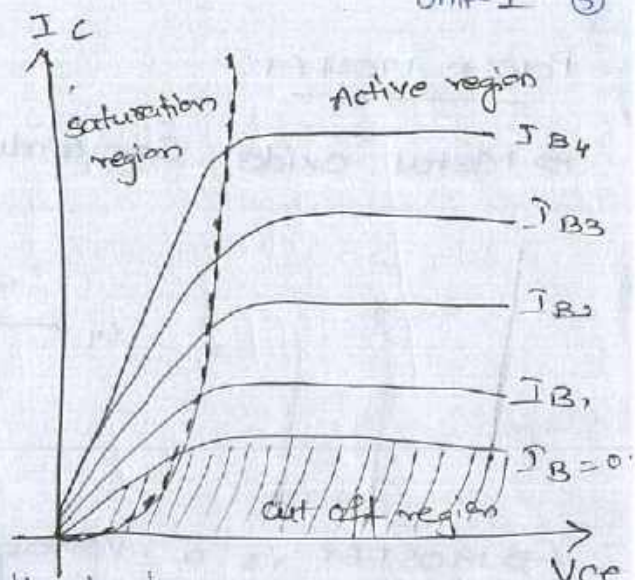 Unit-I (3)
IC
saturation
region
Active region
IB4
IB3
IB2
IB1
IB=0
cut off region
VCE